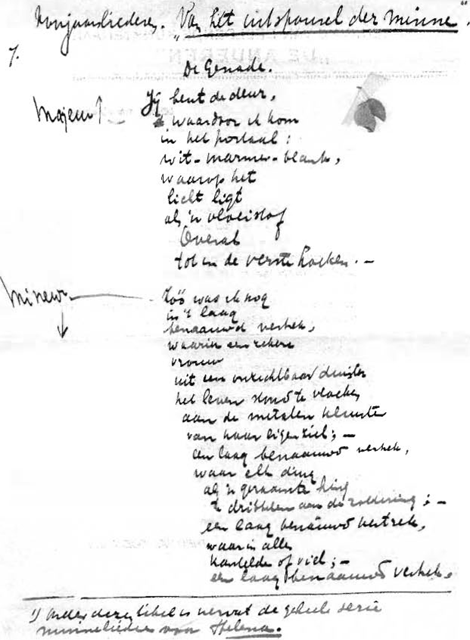 Voorjaarsliederen. "Van het uitspansel der minne".
7.
De Genade.
Majeur ↑
Jij bent de deur,
waardoor ik kom
in het portaal:
wit-marmer-blank,
waarop het
licht ligt
als 'n vloeistof
Overal
tot in de verste hoeken. —
Mineur ↓
Zóó was ik nog
in 't laag
benauwd vertrek,
waarin een zekere
vrouw
uit een onzichtbaar duister
het leven stond te vloeken
aan de metalen
van haar eigen ziel; —
een laag benauwd vertrek,
waar elk ding
als 'n geraamte hing
te dribbelen aan de zoldering; —
een laag benauwd vertrek,
waarin alles
kantelde of viel; —
een laag benauwd vertrek.
1) Onder dezen titel is vervat de geheele serie
minneliederen van Helena.